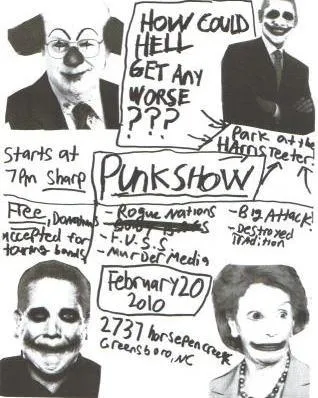 HOW COULD
HELL
GET ANY
WORSE
???
Park at the
Harris Teeter!
Starts at
7pm Sharp
PUNKSHOW
Free, Donations
accepted for
touring bands
- Rogue Nations
- F.U.S.S.
- Murder Media
- Big Attack!
- Destroyed
Tradition
February 20
2010
2737 horsepen creek
Greensboro, NC